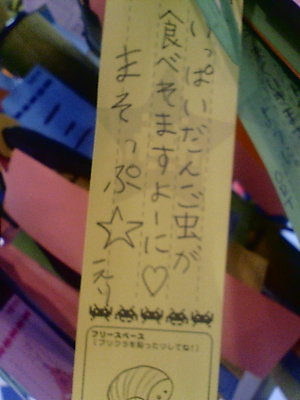 いっぱいだんご虫が
食べそますよーに♡
まそっぷ☆ えり
フリースペース
(プリクラを貼ったりしてね!)